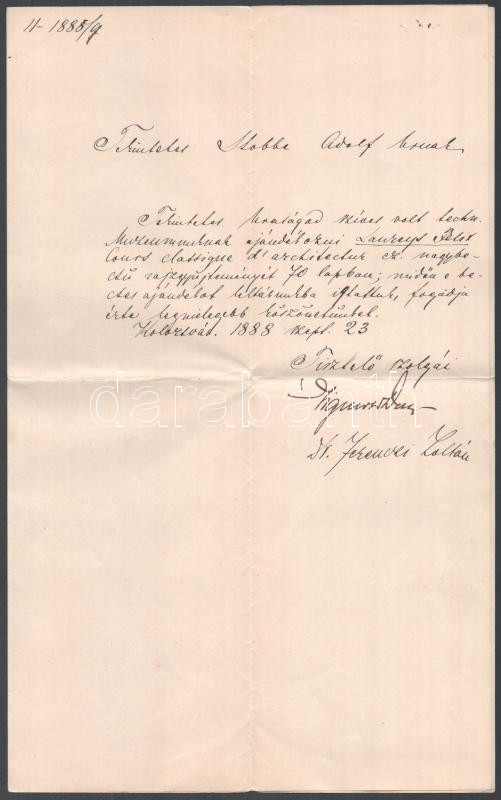 11-1888/9
Tekintetes Stobbe Adolf Urnak
Tekintetes Uraságod szíves volt techn.
Muzeumunknak ajándékozni Laureys Felix
Cours classique d'architectur cz. nagybe-
csű rajzgyüjteményét 70 lapban; midőn e be-
cses ajándékot leltárunkba iktattuk, fogadja
érte legmelegebb köszönetünket.
Kolozsvár. 1888 szept. 23
Tisztelő szolgái
Dr. Ferenczi Zoltán
darabanth